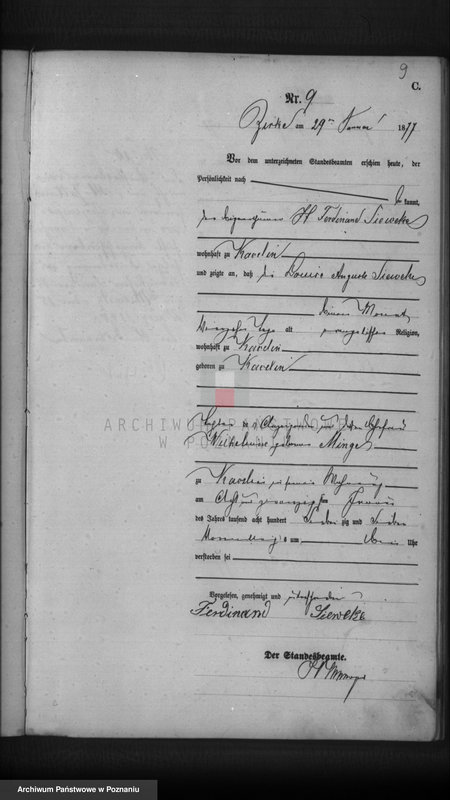 9
C.
Nr. 9
Zirke am 29ten Januar 1877
Vor dem unterzeichneten Standesbeamten erschien heute, der
Persönlichkeit nach
be kannt,
der Eigenthümer Ferdinand Siewcke
wohnhaft zu Kavelin
und zeigte an, daß die Louise Auguste Siewcke
einen Monat
Tage alt evangelischer Religion,
wohnhaft zu Kavelin
geboren zu Kavelin
ARCHIWUM PAŃSTWOWE
W POZNANIU
Tochter des Anzeigenden und dessen Ehefrau
Wilhelmine geborene Minge
zu Kavelin in seiner Wohnung
am Acht und zwanzigsten Januar
des Jahres tausend acht hundert siebenzig und sieben
Vormittags um Uhr
verstorben sei
Vorgelesen, genehmigt und unterschrieben
Ferdinand Siewcke
Der Standesbeamte.
Archiwum Państwowe w Poznaniu